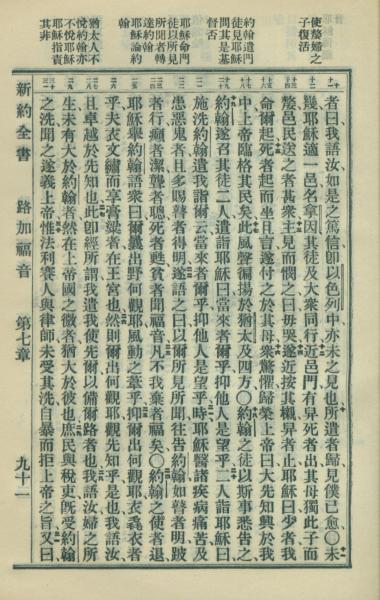 使嫠婦之
子復活
約翰遣門
徒見耶穌
問其是基
督否
耶穌命門
徒以所見
所聞者轉
達約翰
耶穌論約
翰
猶太人不
悅約翰亦
不悅耶穌
耶穌指責
其非
者曰我語汝如是之篤信卽以色列中亦未之見也所遣者歸見僕已愈〇未
幾耶穌適一邑名拿因其徒及大衆同行近邑門有舁死者出其母獨此子而
嫠邑民送之者甚衆主見而憫之曰毋哭遂近按其櫬舁者止耶穌曰少者我
命爾起死者起而坐且言遂付之於其母衆驚懼歸榮上帝曰大先知興於我
中上帝臨格其民矣此風聲徧揚於猶太及四方〇約翰之徒以斯事悉告之
約翰遂召其徒二人遣詣耶穌曰當來者爾乎抑他人是望乎二人詣耶穌曰
施洗約翰遣我詣爾云當來者爾乎抑他人是望乎時耶穌醫諸疾病痛苦及
患惡鬼者且多賜瞽者得明遂語之曰以爾所見所聞往告約翰如瞽者明跛
者行癩者潔聾者聰死者甦貧者聞福音凡不我棄者福矣〇約翰之使者退
耶穌舉約翰語衆曰爾曩出野何觀耶風動之葦乎抑爾出何觀耶衣毳衣者
乎夫衣文繡而享膏粱者在王宮也然則爾出何觀耶觀先知乎是也我語汝
且卓越於先知也此卽經所謂我遣我使先爾以備爾路者也我語汝婦之所
生未有大於約翰者然在上帝國之微者猶大於彼也庶民與稅吏旣受約翰
之洗聞之遂義上帝惟法利賽人與律師未受其洗自暴而拒上帝之旨又曰
新約全書　路加福音　第七章　九十一